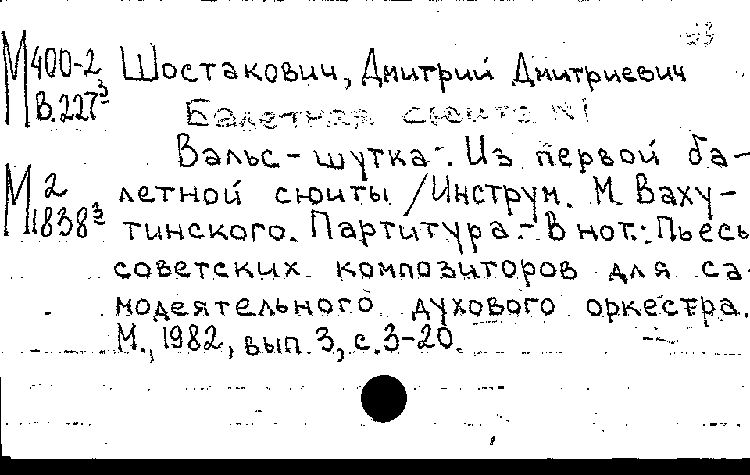 М400-2 Шостакович, Дмитрий Дмитриевич
В.227³
Балетная сюита №1
Вальс-шутка. Из первой ба-
М 2 летной сюиты /Инструм. М. Ваху-
1838³ тинского. Партитура.- В нот.: Пьесы
советских композиторов для са-
модеятельного духового оркестра.
М., 1982, вып. 3, с. 3-20.